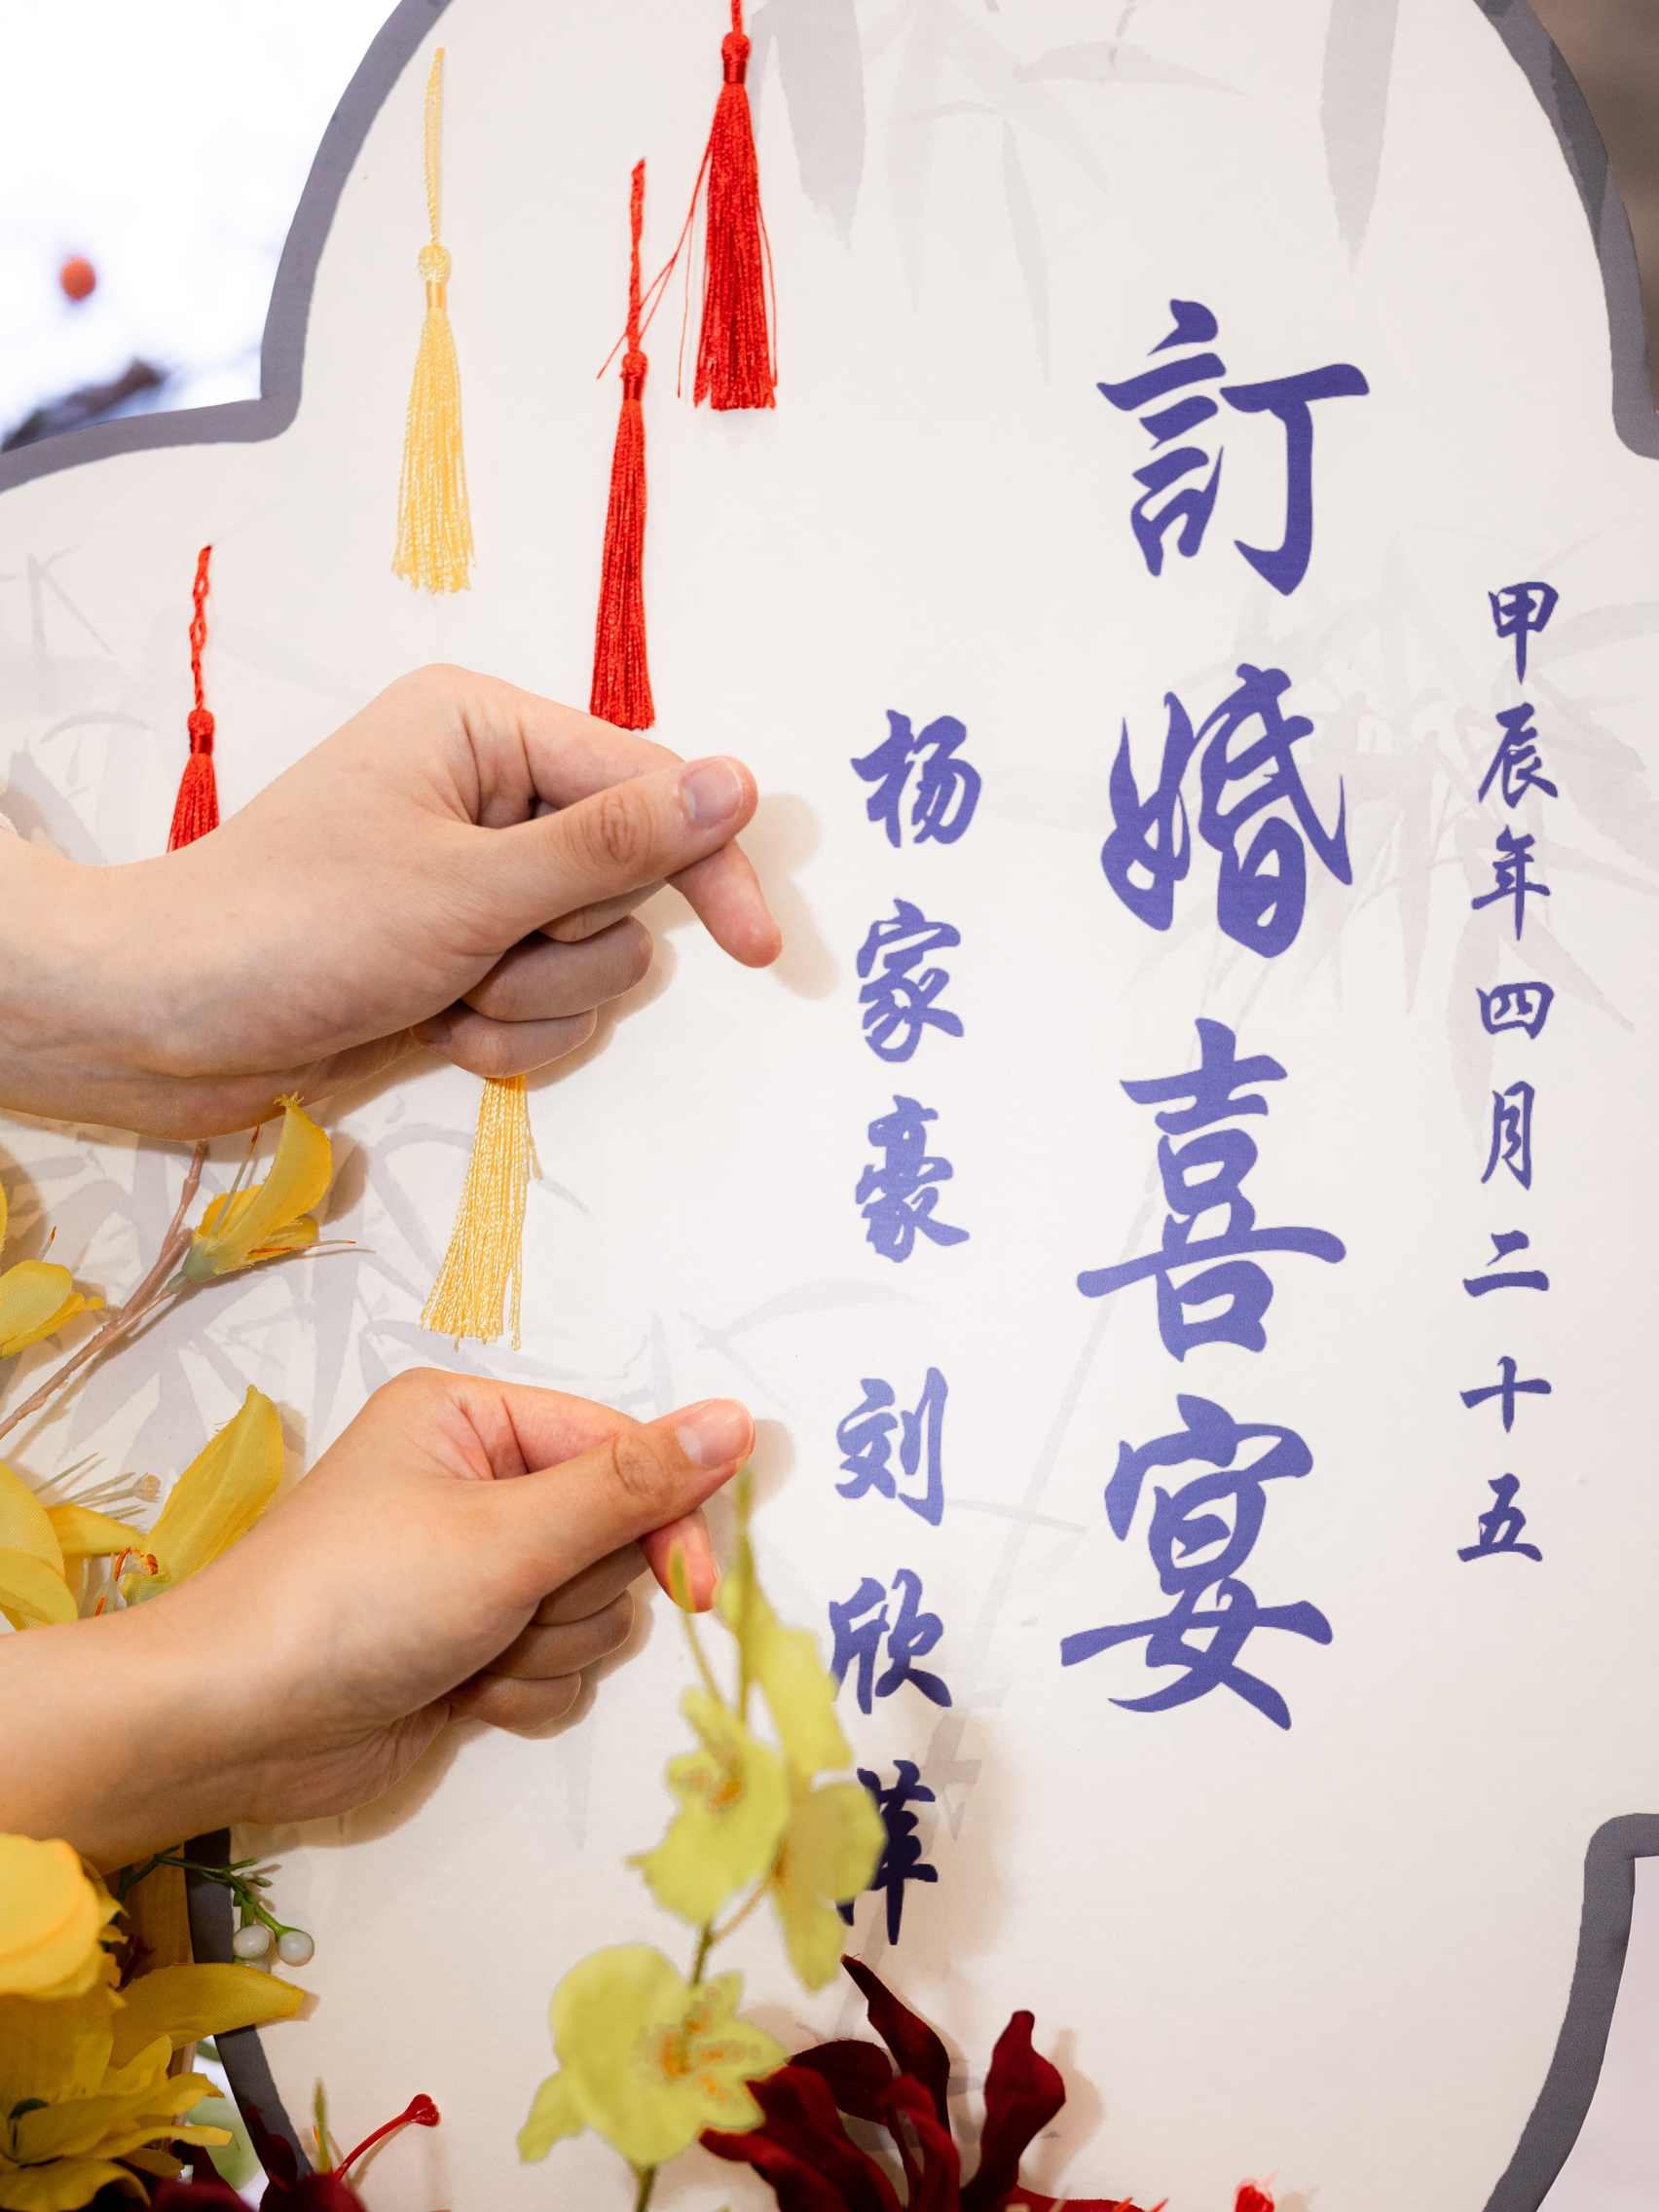 甲辰年四月二十五
訂婚喜宴
杨家豪 刘欣